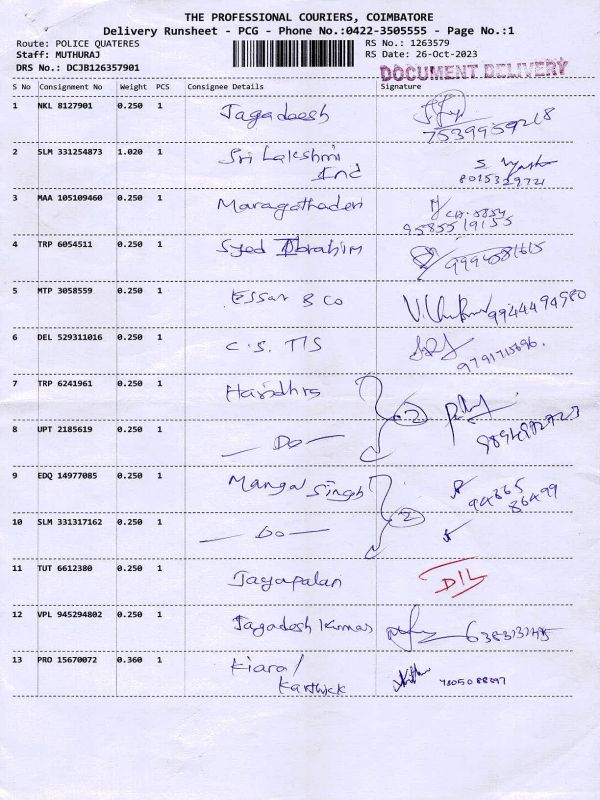 THE PROFESSIONAL COURIERS, COIMBATORE
Delivery Runsheet - PCG - Phone No.:0422-3505555 - Page No.:1
Route: POLICE QUATERES RS No.: 1263579
Staff: MUTHURAJ RS Date: 26-Oct-2023
DRS No.: DCJB126357901
DOCUMENT DELIVERY
S No Consignment No Weight PCS Consignee Details Signature
1 NKL 8127901 0.250 1 Jagadeesh
7539959218
2 SLM 331254873 1.020 1 Sri Lakshmi
Ind
8015329721
3 MAA 105109460 0.250 1 Maragathaden
9585519155
4 TRP 6054511 0.250 1 Syed Ibrahim 9994081615
5 MTP 3058559 0.250 1 Essar & Co 9944494980
6 DEL 529311016 0.250 1 C.S. TTS
9791715896.
7 TRP 6241961 0.250 1
8 UPT 2185619 0.250 1 — Do —
9 EDQ 14977085 0.250 1 Mangal Singh
94865
86499
10 SLM 331317162 0.250 1 — Do — 2
11 TUT 6612380 0.250 1 Jayapalan D/L
12 VPL 945294802 0.250 1 Jagadesh Kumar
13 PRO 15670072 0.360 1 Kiara/
Karthick